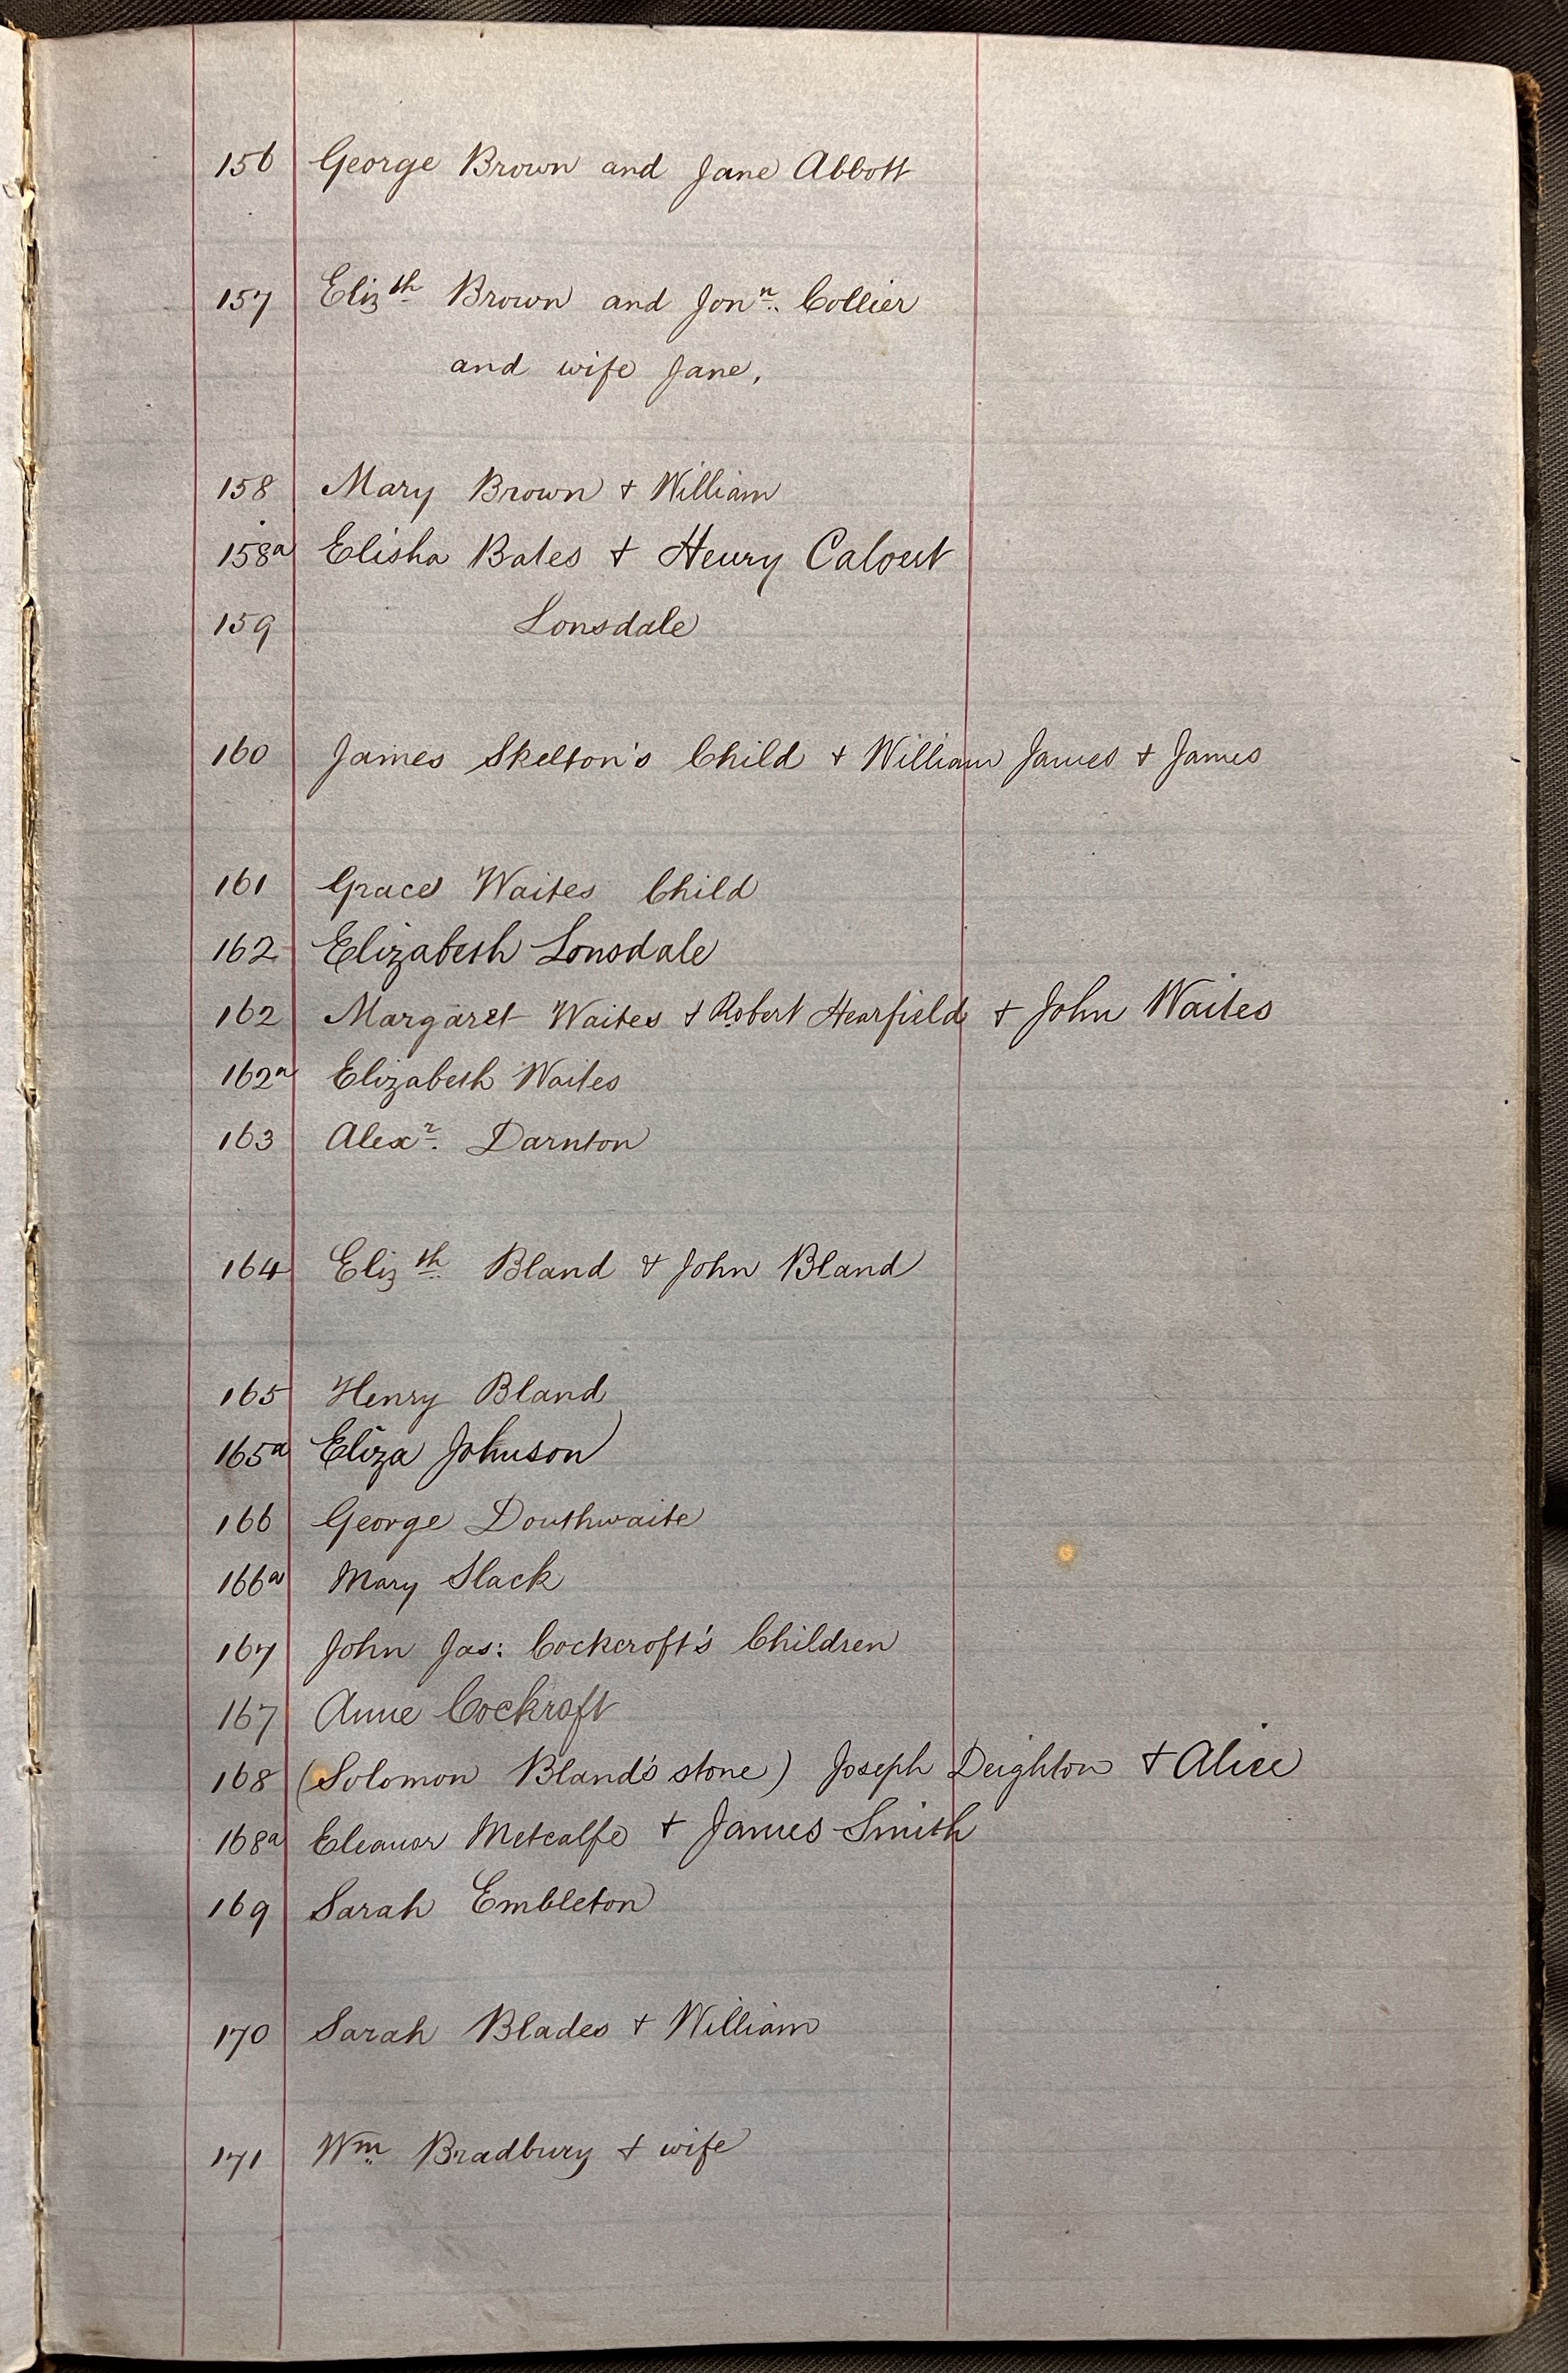 156 George Brown and Jane Abbott
157 Elizth Brown and Jonn. Collier
and wife Jane,
158 Mary Brown + William
158a Elisha Bates + Henry Calvert
159 Lonsdale
160 James Skelton's Child + William James + James
161 Grace Waites Child
162 Elizabeth Lonsdale
162 Margaret Waites + Robert Hearfield + John Waites
162a Elizabeth Waites
163 Alexr. Darnton
164 Elizth Bland + John Bland
165 Henry Bland
165a Eliza Johnson
166 George Douthwaite
166a Mary Slack
167 John Jas: Cockcroft's Children
167 Anne Cockroft
168 (Solomon Bland's stone) Joseph Deighton + Alice
168a Eleanor Metcalfe + James Smith
169 Sarah Embleton
170 Sarah Blades + William
171 Wm. Bradbury + wife